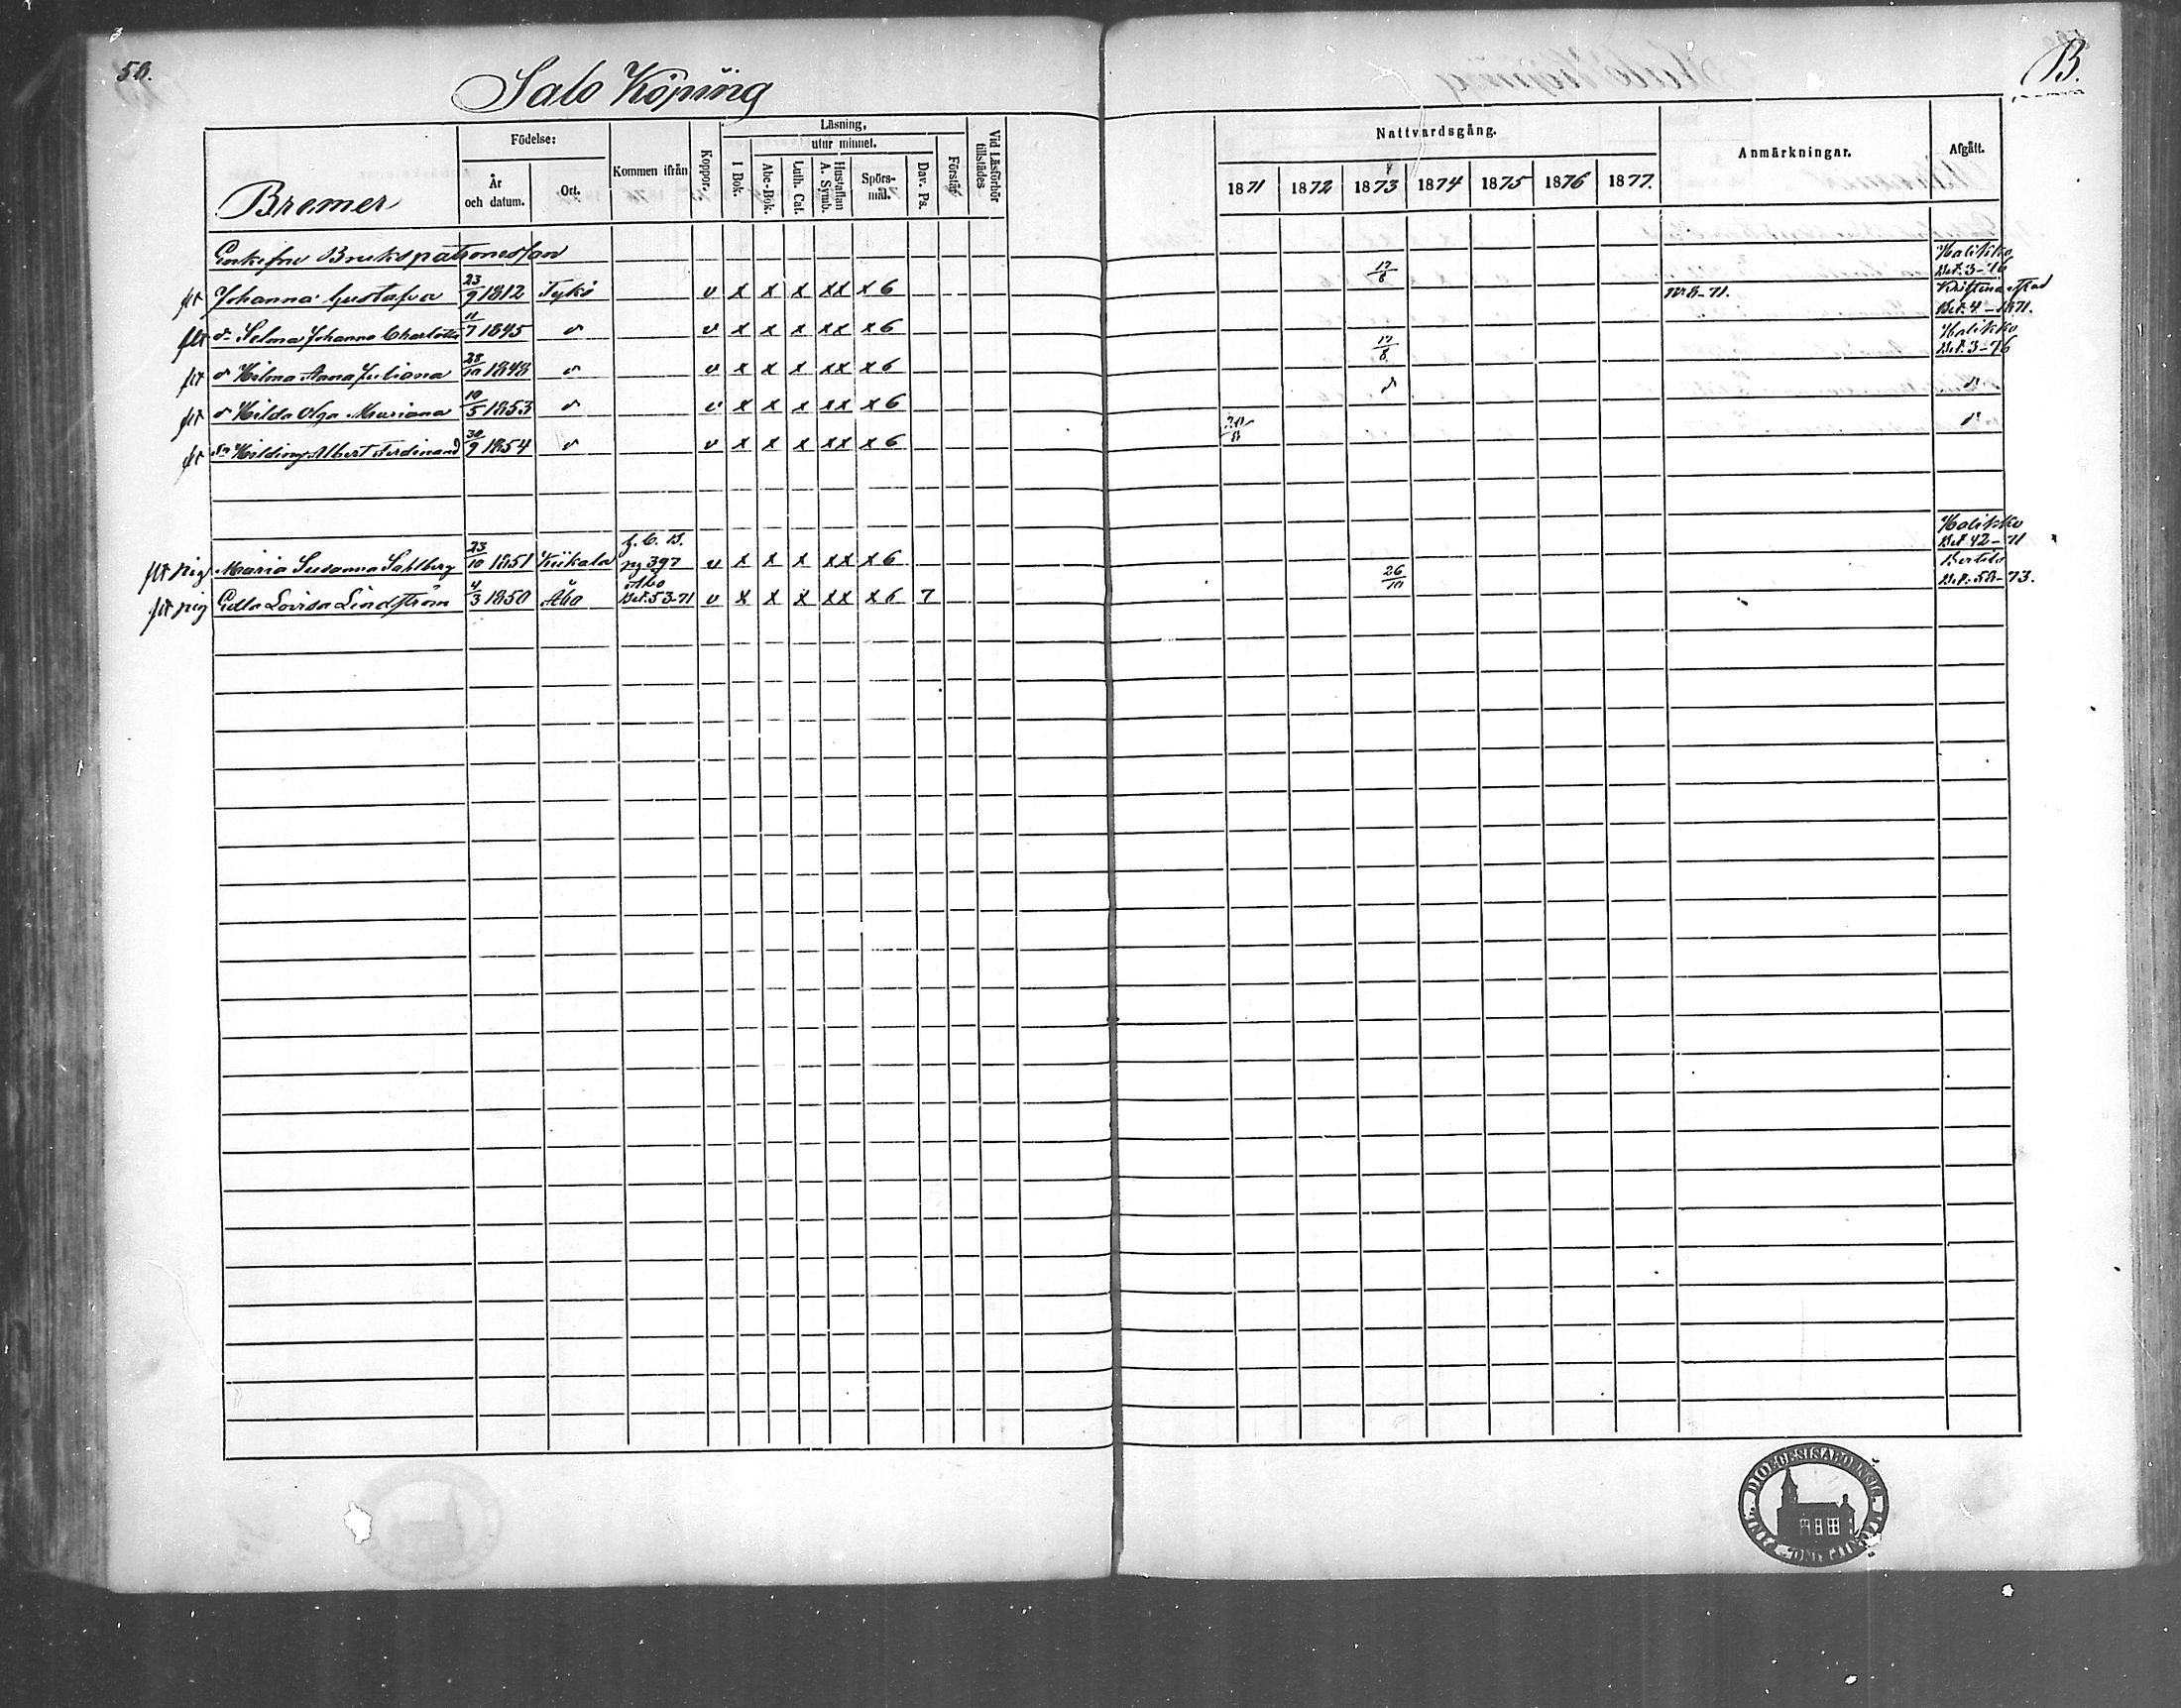 50.
Salo Köping
B.
Bremer
Födelse:
År och datum.
Ort.
Kommen ifrån
Koppor.
Läsning,
utur minnet.
I Bok.
Abc-Bok.
Luth. Cat.
Hustaflan A. Symb.
Spörsmål.
Dav. Ps.
Förstår
Vid Läsförhör tillstädes
Nattvardsgång.
1871 1872 1873 1874 1875 1876 1877.
Anmärkningar.
Afgått.
Enkefru Brukspatronesan
flt Johanna Gustafva 23/9 1812 Tykö v x x x xx x 6 17/8 Halikko Bet. 3-76
flt dr Selma Johanna Charlotta 11/7 1845 v x x x xx x 6 Nr 8-71. Kristinestad Bet. 4-1871.
flt Hilma Anna Juliana 28/10 1848 v x x x xx x 6 17/8 Halikko Bet. 3-76
flt Hilda Olga Mariana 10/5 1853 v x x x xx x 6
flt sn Hilding Albert Ferdinand 30/9 1854 v x x x xx x 6 20/8
flt pig Maria Susanna Sahlberg 23/10 1851 Kiikala pg 397 v x x x xx x 6 Halikko Bet. 42-71
flt pig Edla Lovisa Lindström 4/3 1850 Åbo Åbo Bet. 53-71 v x x x xx x 6 7 26/10 Bet. 58-73.